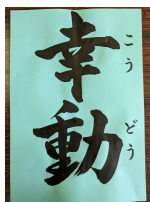 幸動
こう
どう